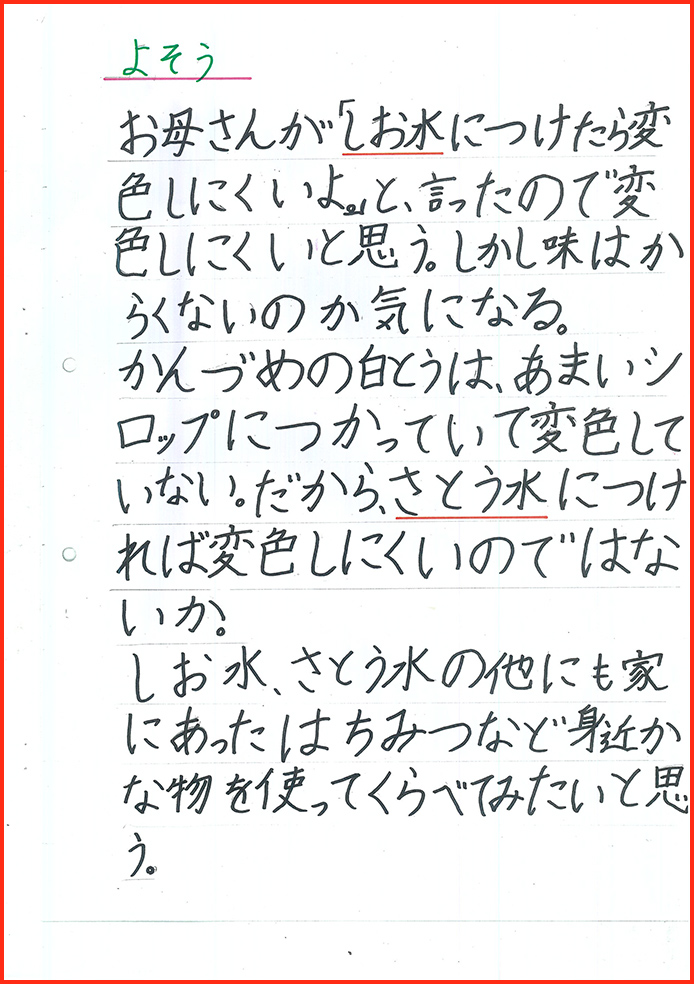 よそう
お母さんが「しお水につけたら変
色しにくいよ。」と、言ったので変
色しにくいと思う。しかし味はか
らくないのか気になる。
かんづめの白とうは、あまいシ
ロップにつかっていて変色して
いない。だから、さとう水につけ
れば変色しにくいのではな
いか。
しお水、さとう水の他にも家
にあったはちみつなど身近か
な物を使ってくらべてみたいと思
う。